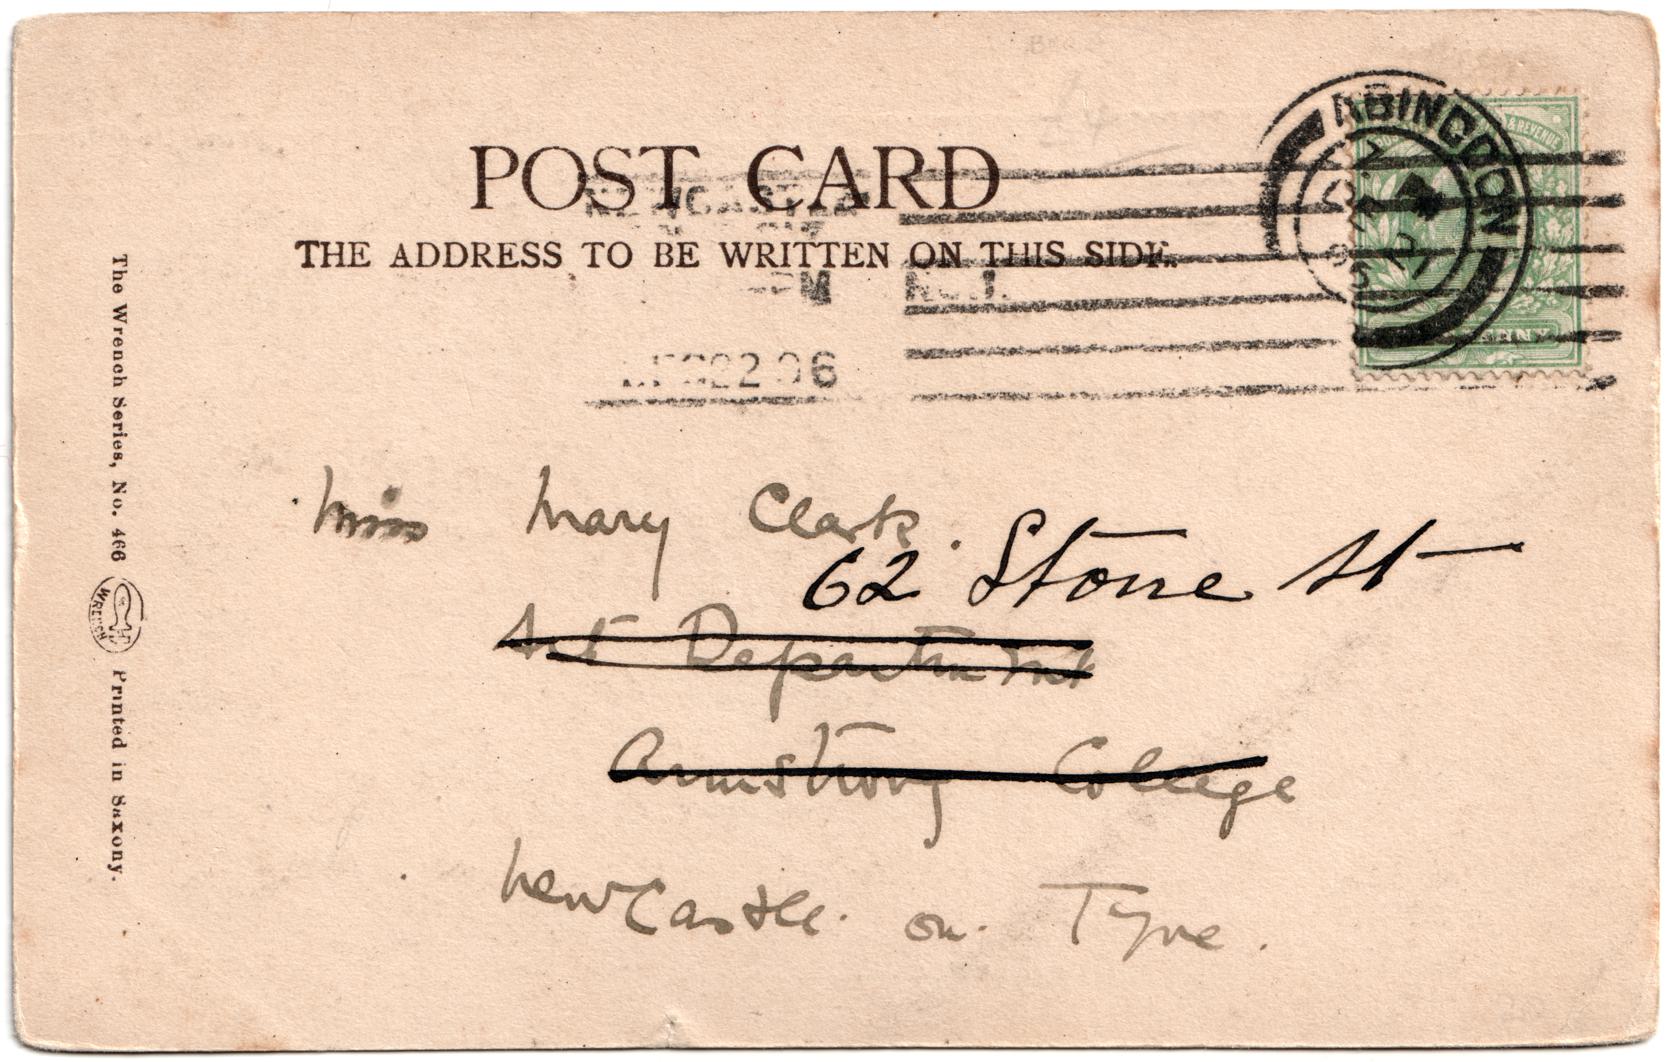 POST CARD
THE ADDRESS TO BE WRITTEN ON THIS SIDE.
ABINGDON
& REVENUE
PENNY
NEWCASTLE
PM NO.1.
DEC 22 06
Miss Mary Clark.
62 Stone St
Art Department
Armstrong College
NewCastle. on. Tyne.
The Wrench Series, No. 466
WRENCH
Printed in Saxony.
£4